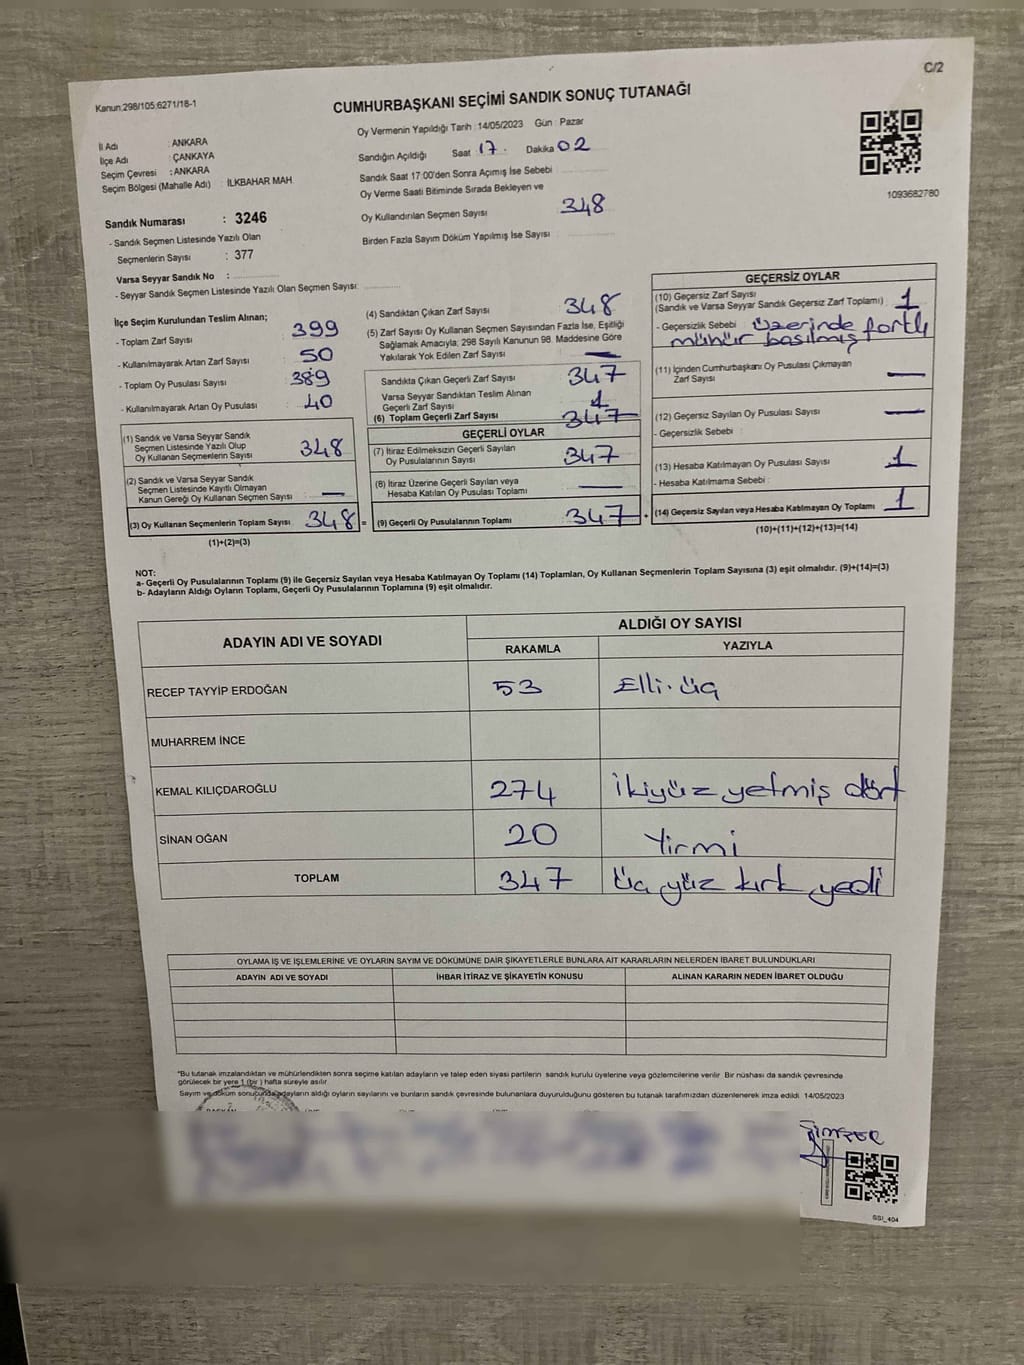 C/2
Kanun:298/105;6271/18-1
CUMHURBAŞKANI SEÇİMİ SANDIK SONUÇ TUTANAĞI
İl Adı : ANKARA
İlçe Adı : ÇANKAYA
Seçim Çevresi : ANKARA
Seçim Bölgesi (Mahalle Adı) : İLKBAHAR MAH.
Oy Vermenin Yapıldığı Tarih : 14/05/2023 Gün : Pazar
Sandığın Açıldığı Saat 17. Dakika 02
Sandık Saat 17:00'den Sonra Açımış İse Sebebi
Oy Verme Saati Bitiminde Sırada Bekleyen ve
Oy Kullandırılan Seçmen Sayısı 348
Birden Fazla Sayım Döküm Yapılmış İse Sayısı
1093682780
Sandık Numarası : 3246
- Sandık Seçmen Listesinde Yazılı Olan
Seçmenlerin Sayısı : 377
Varsa Seyyar Sandık No :
- Seyyar Sandık Seçmen Listesinde Yazılı Olan Seçmen Sayısı:
İlçe Seçim Kurulundan Teslim Alınan;
- Toplam Zarf Sayısı 399
- Kullanılmayarak Artan Zarf Sayısı 50
- Toplam Oy Pusulası Sayısı 389
- Kullanılmayarak Artan Oy Pusulası 40
(1) Sandık ve Varsa Seyyar Sandık
Seçmen Listesinde Yazılı Olup
Oy Kullanan Seçmenlerin Sayısı 348
(2) Sandık ve Varsa Seyyar Sandık
Seçmen Listesinde Kayıtlı Olmayan
Kanun Gereği Oy Kullanan Seçmen Sayısı —
(3) Oy Kullanan Seçmenlerin Toplam Sayısı 348 =
(1)+(2)=(3)
(4) Sandıktan Çıkan Zarf Sayısı 348
(5) Zarf Sayısı Oy Kullanan Seçmen Sayısından Fazla İse, Eşitliği
Sağlamak Amacıyla; 298 Sayılı Kanunun 98. Maddesine Göre
Yakılarak Yok Edilen Zarf Sayısı —
Sandıkta Çıkan Geçerli Zarf Sayısı 347
Varsa Seyyar Sandıktan Teslim Alınan
Geçerli Zarf Sayısı
(6) Toplam Geçerli Zarf Sayısı 347
GEÇERLİ OYLAR
(7) İtiraz Edilmeksizin Geçerli Sayılan
Oy Pusulalarının Sayısı 347
(8) İtiraz Üzerine Geçerli Sayılan veya
Hesaba Katılan Oy Pusulası Toplamı —
(9) Geçerli Oy Pusulalarının Toplamı 347
GEÇERSİZ OYLAR
(10) Geçersiz Zarf Sayısı
(Sandık ve Varsa Seyyar Sandık Geçersiz Zarf Toplamı) 1
- Geçersizlik Sebebi üzerinde farklı
mühür basılmış
(11) İçinden Cumhurbaşkanı Oy Pusulası Çıkmayan
Zarf Sayısı —
(12) Geçersiz Sayılan Oy Pusulası Sayısı —
- Geçersizlik Sebebi :
(13) Hesaba Katılmayan Oy Pusulası Sayısı 1
- Hesaba Katılmama Sebebi :
(14) Geçersiz Sayılan veya Hesaba Katılmayan Oy Toplamı 1
(10)+(11)+(12)+(13)=(14)
NOT:
a- Geçerli Oy Pusulalarının Toplamı (9) ile Geçersiz Sayılan veya Hesaba Katılmayan Oy Toplamı (14) Toplamları, Oy Kullanan Seçmenlerin Toplam Sayısına (3) eşit olmalıdır. (9)+(14)=(3)
b- Adayların Aldığı Oyların Toplamı, Geçerli Oy Pusulalarının Toplamına (9) eşit olmalıdır.
ADAYIN ADI VE SOYADI ALDIĞI OY SAYISI
RAKAMLA YAZIYLA
RECEP TAYYİP ERDOĞAN 53 Elli.üç
MUHARREM İNCE
KEMAL KILIÇDAROĞLU 274 ikiyüz yetmiş dört
SİNAN OĞAN 20 Yirmi
TOPLAM 347 üç yüz kırk yedi
OYLAMA İŞ VE İŞLEMLERİNE VE OYLARIN SAYIM VE DÖKÜMÜNE DAİR ŞİKAYETLERLE BUNLARA AİT KARARLARIN NELERDEN İBARET BULUNDUKLARI
ADAYIN ADI VE SOYADI İHBAR İTİRAZ VE ŞİKAYETİN KONUSU ALINAN KARARIN NEDEN İBARET OLDUĞU
*Bu tutanak imzalandıktan ve mühürlendikten sonra seçime katılan adayların ve talep eden siyasi partilerin sandık kurulu üyelerine veya gözlemcilerine verilir. Bir nüshası da sandık çevresinde
görülecek bir yere 1 (bir) hafta süreyle asılır.
Sayım ve döküm sonucunda adayların aldığı oyların sayılarını ve bunların sandık çevresinde bulunanlara duyurulduğunu gösteren bu tutanak tarafımızdan düzenlenerek imza edildi. 14/05/2023
SSİ_404